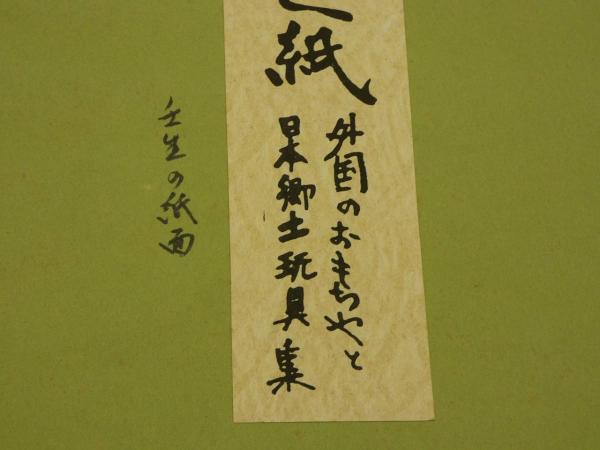 紙
外国のおもちやと
日本郷土玩具集
壬生の紙面